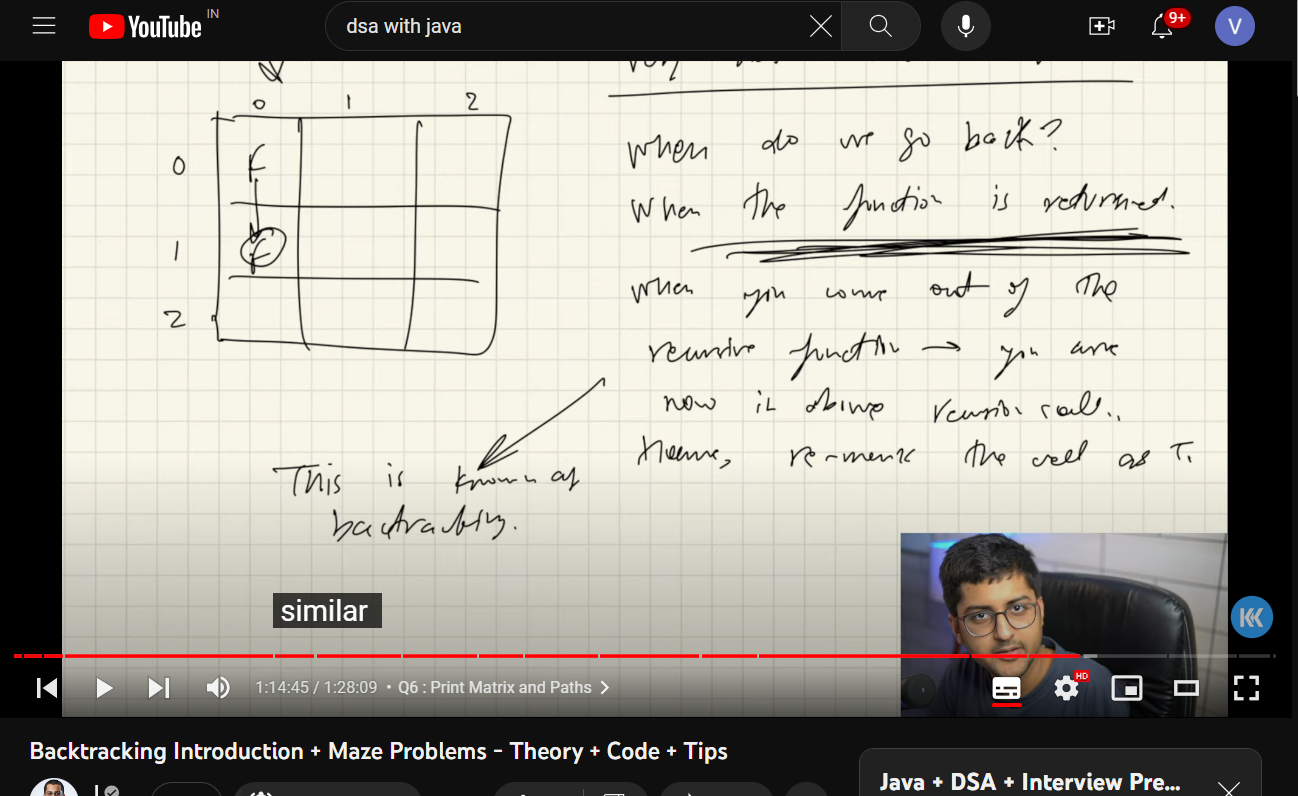 YouTube IN
dsa with java
9+
V
0 1 2
0 F
1 F
2
When do we go back?
When the function is returned.
When you come out of the
recursive function → you are
now in above recursion call..
Hence, re-mark the cell as T.
This is known as
backtracking.
similar
1:14:45 / 1:28:09 • Q6 : Print Matrix and Paths
HD
Backtracking Introduction + Maze Problems - Theory + Code + Tips
Java + DSA + Interview Pre...